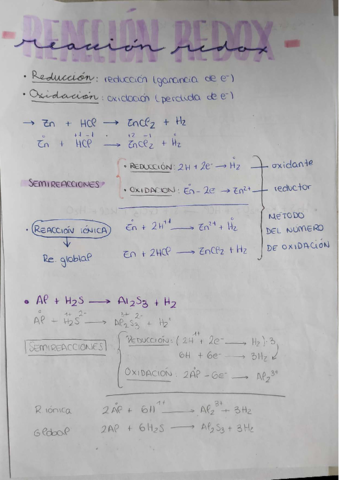 REACCIÓN REDOX
reacción redox
• Reducción: reducción (ganancia de e⁻)
• Oxidación: oxidación (perdida de e⁻)
→ Zn + HCl → ZnCl₂ + H₂
Zn + HCl → ZnCl₂ + H₂
SEMIREACCIONES
• REDUCCION: 2H + 2e⁻ → H₂ → oxidante
• OXIDACION: Zn - 2e⁻ → Zn²⁺ → reductor
METODO DEL NUMERO DE OXIDACIÓN
• REACCIÓN IÓNICA
Zn + 2H¹⁺ → Zn²⁺ + H₂
Re. global
Zn + 2HCl → ZnCl₂ + H₂
• Al + H₂S → Al₂S₃ + H₂
Al - H₂S → Al₂S₃ + H₂
SEMIREACCIONES
Reducción: (2H¹⁺ + 2e⁻ → H₂) 3
6H + 6e⁻ → 3H₂
OXIDACIÓN: 2Al - 6e⁻ → Al₂³⁺
R iónica 2Al + 6H¹⁺ → Al₂³⁺ + 3H₂
Global 2Al + 6H₂S → Al₂S₃ + 3H₂